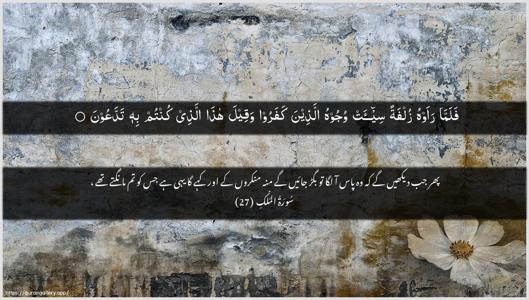 فَلَمَّا رَاَوْهُ زُلْفَةً سِیْٓـَٔتْ وُجُوْهُ الَّذِیْنَ كَفَرُوْا وَقِیْلَ هٰذَا الَّذِیْ كُنْتُمْ بِهٖ تَدَّعُوْنَ ○
پھر جب دیکھیں گے کہ وہ پاس آ لگا تو بگڑ جائیں گے منہ منکروں کے اور کہے گا یہی ہے جس کو تم مانگتے تھے ،
سُوْرَةُ الْمُلْكِ (27)
https://qurangallery.app/